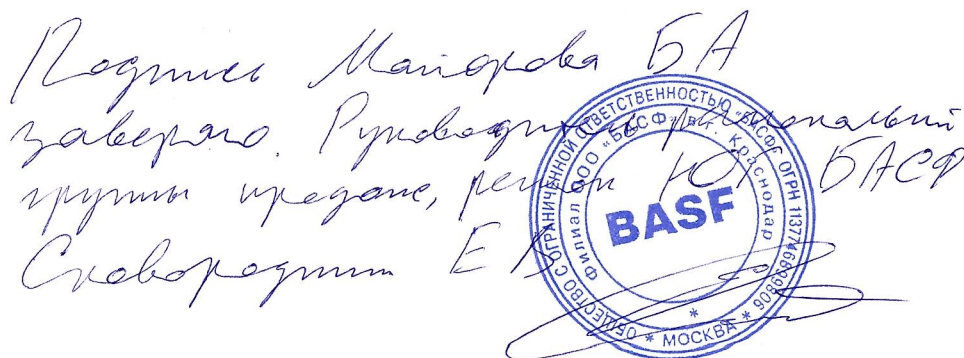 Подпись Майорова БА
заверяю. Руководитель региональной
группы продаж, регион Юг БАСФ
Сковородин Е В
ОБЩЕСТВО С ОГРАНИЧЕННОЙ ОТВЕТСТВЕННОСТЬЮ «БАСФ» ОГРН 1137746899806
* МОСКВА *
Филиал ООО "БАСФ" в г. Краснодар
BASF